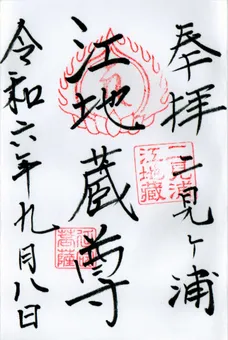 奉拝 二見ヶ浦
江地蔵尊
令和六年九月八日
二見浦
江地蔵